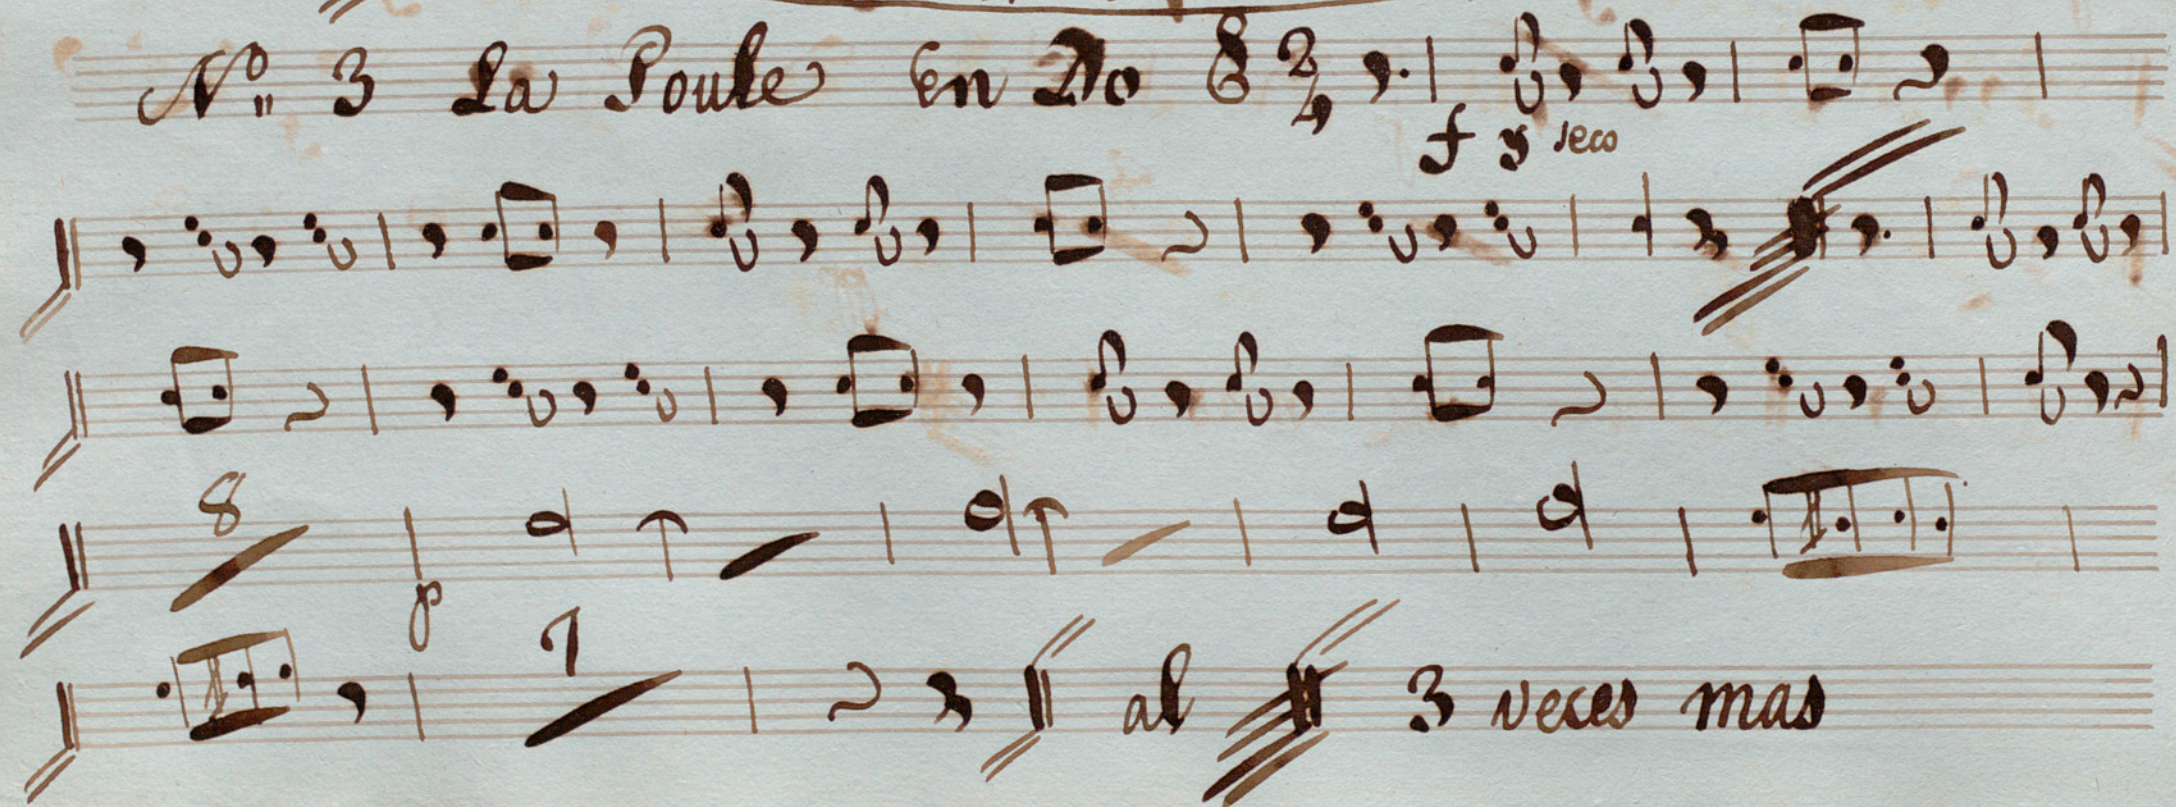 Nº 3 La Poule en Do 2/4
f y seco
8
p
7
al 3 veces mas